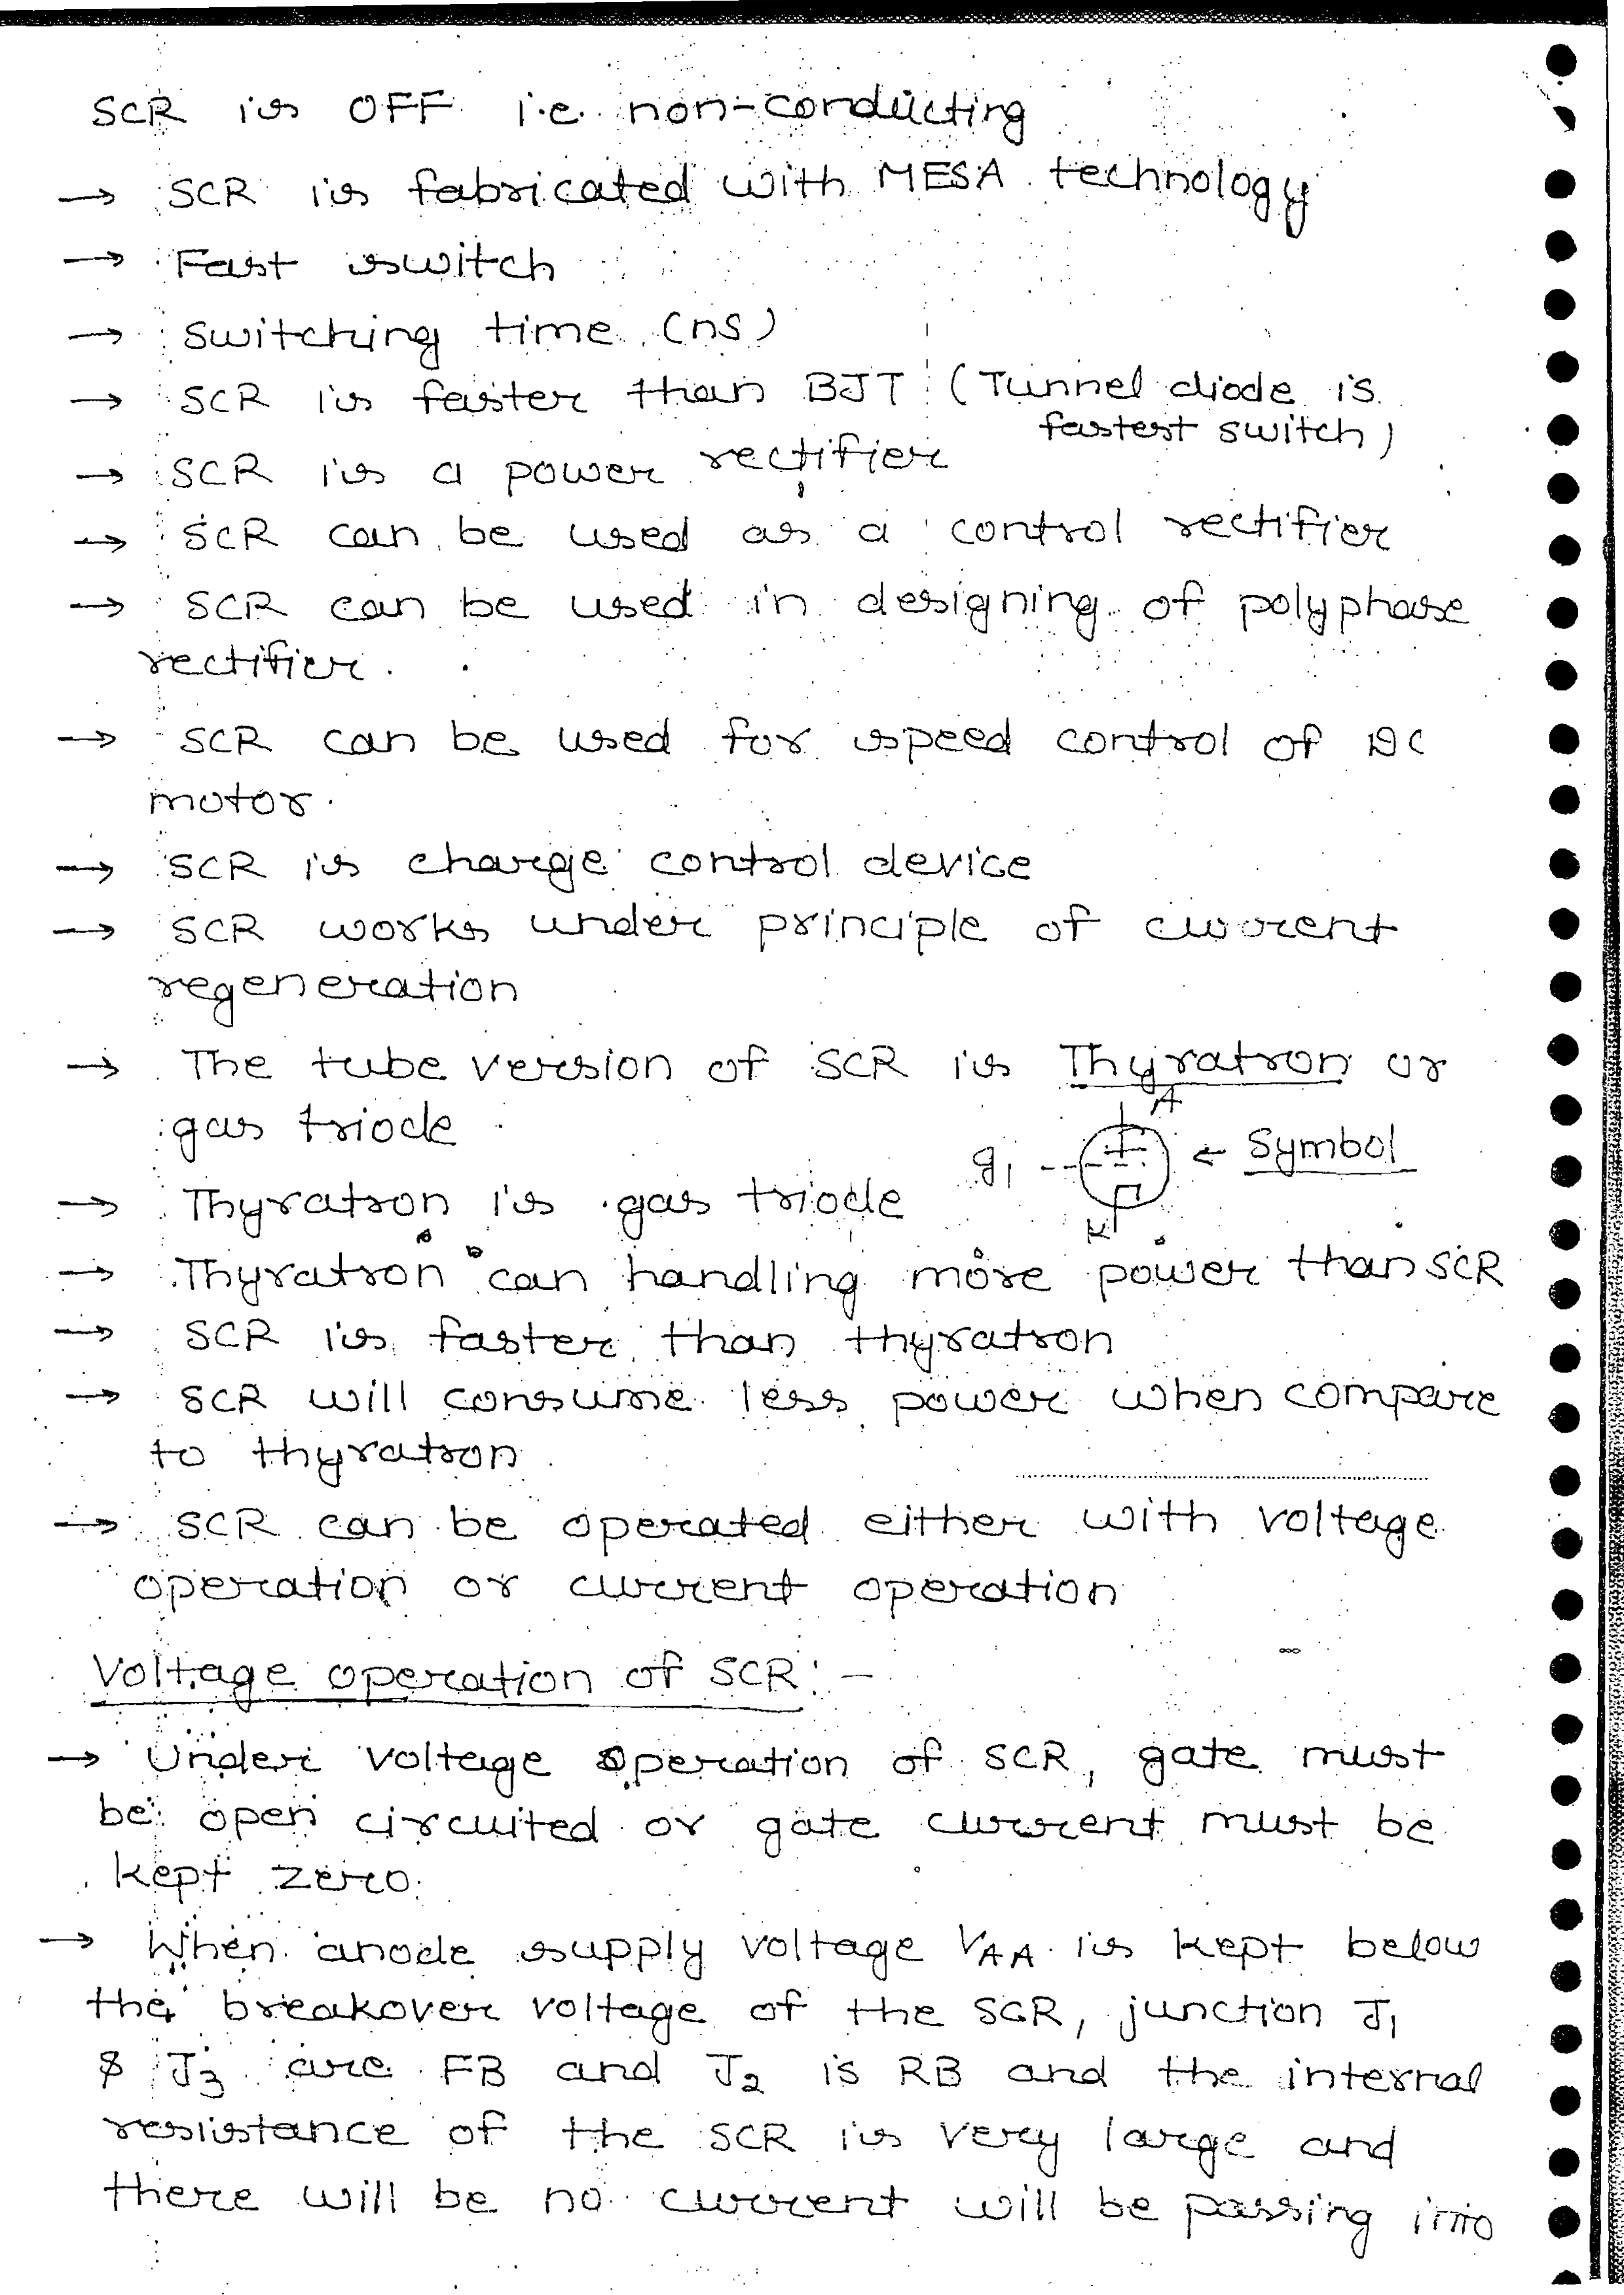 SCR is OFF i.e. non-conducting
→ SCR is fabricated with MESA technology
→ Fast switch
→ switching time (ns)
→ SCR is faster than BJT (Tunnel diode is
fastest switch)
→ SCR is a power rectifier
→ SCR can be used as a control rectifier
→ SCR can be used in designing of polyphase
rectifier.
→ SCR can be used for speed control of DC
motor.
→ SCR is charge control device
→ SCR works under principle of current
regeneration
→ The tube version of SCR is Thyratron or
gas triode
A
g1
← Symbol
K
→ Thyratron is gas triode
→ Thyratron can handling more power than SCR
→ SCR is faster than thyratron
→ SCR will consume less power when compare
to thyratron
→ SCR can be operated either with voltage
operation or current operation
Voltage operation of SCR:-
→ Under voltage operation of SCR, gate must
be open circuited or gate current must be
kept zero.
→ When anode supply voltage VAA is kept below
the breakover voltage of the SCR, junction J1
& J3 are FB and J2 is RB and the internal
resistance of the SCR is very large and
there will be no current will be passing into